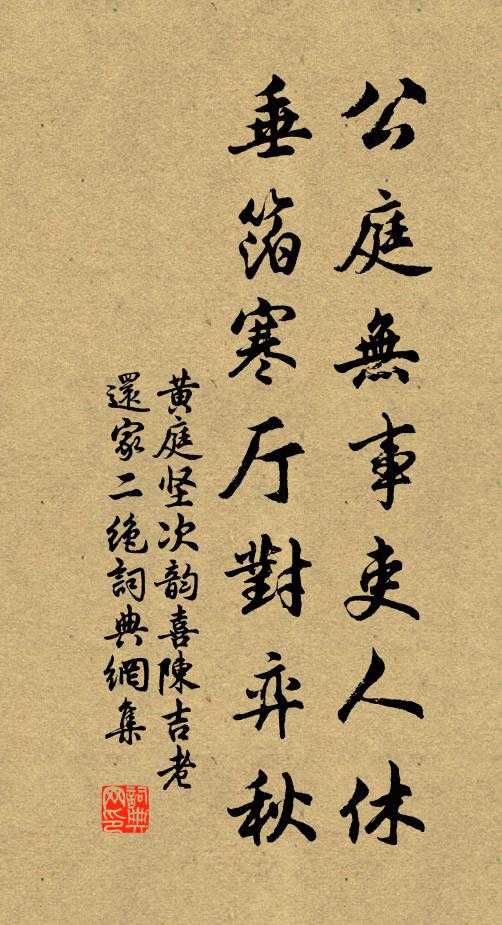 公庭無事吏人休
垂箔寒厅對弈秋
黄庭坚次韵喜陳吉老
還家二绝詞典網集
詞典網印